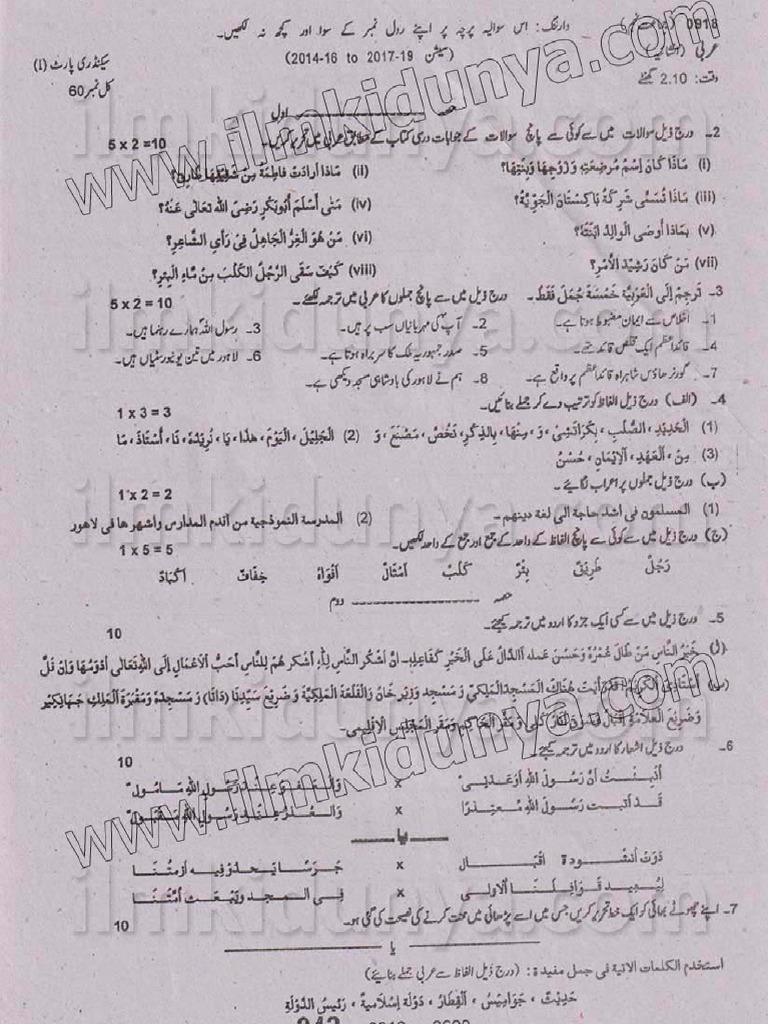 0918 وارننگ: اس سوالیہ پرچہ پر اپنے رول نمبر کے سوا اور کچھ نہ لکھیں۔
عربی (سیشن 2014-16 to 2017-19) سیکنڈری پارٹ (I)
وقت: 2.10 گھنٹے کل نمبر 60
حصہ اول
2۔ درج ذیل سوالات میں سے کوئی سے پانچ سوالات کے جوابات درسی کتاب کے مطابق عربی میں تحریر کریں۔ 5 x 2 =10
(i) مَاذَا كَانَ اِسْمُ مُرضِعَتِهٖ وَ زَوْجِهَا وَبِنْتِهَا؟ (ii) مَاذَا أَرَادَتْ فَاطِمَةُ مِنْ شَقِيْقِهَا طَارِقٍ؟
(iii) مَاذَا تُسَمّٰى شَرِكَةُ بَاكِسْتَانَ الْجَوِّيَّةُ؟ (iv) مَتٰى أَسْلَمَ أَبُوْبَكْرٍ رَضِىَ الله تَعَالٰى عَنْهُ؟
(v) بِمَاذَا أَوْصَى الْوَالِدُ ابْنَتَهُ؟ (vi) مَنْ هُوَ الْغِرُّ الْجَاهِلُ فِىْ رَأيِ الشَّاعِرِ؟
(vii) مَنْ كَانَ رَشِيْدَ الْأَمْرِ؟ (viii) كَيْفَ سَقَى الرَّجُلُ الْكَلْبَ مِنْ مَّاءِ الْبِئْرِ؟
3۔ تَرجِمْ إِلَى الْعَرَبِيَّةِ خَمْسَةَ جُمَلٍ فَقَطْ۔ درج ذیل میں سے پانچ جملوں کا عربی میں ترجمہ لکھئے۔ 5 x 2 = 10
1۔ اخلاص سے ایمان مضبوط ہوتا ہے۔ 2۔ آپ کی مہربانیاں سب پر ہیں۔ 3۔ رسول اللہ ہمارے رہنما ہیں۔
4۔ قائداعظم ایک مخلص قائد تھے۔ 5۔ صدر جمہوریہ ملک کا سربراہ ہوتا ہے۔ 6۔ لاہور میں تین یونیورسٹیاں ہیں۔
7۔ گورنر ہاؤس شاہراہ قائداعظم پر واقع ہے۔ 8۔ ہم نے لاہور کی بادشاہی مسجد دیکھی ہے۔
4۔ (الف) درج ذیل الفاظ کو ترتیب دے کر جملے بنائیں۔ 1 x 3 = 3
(1) الْحَدِيْدِ، الصُّلْبِ، بِكَرَاتْشِىْ، وَ، مِنْهَا، بِالذِّكْرِ، نَخُصُّ، مَصْنَعَ، وَ (2) الْجَلِيْلَ، الْيَوْمَ، هٰذَا، يَا، نُرِيْدُهُ، نَا، أُسْتَاذَ، مَا
(3) مِنَ، الْعَهْدِ، الْاِيْمَانِ، حُسْنُ
(ب) درج ذیل جملوں پر اعراب لگائیے۔ 1 x 2 = 2
(1) المسلمون فى اشد حاجة الى لغة دينهم۔ (2) المدرسة النموذجية من اقدم المدارس واشهرها فى لاهور
(ج) درج ذیل میں سے کوئی سے پانچ الفاظ کے واحد کے جمع اور جمع کے واحد لکھیں۔ 1 x 5 = 5
رَجُلٌ طَرِيْقٌ بِئْرٌ كَلْبٌ اَمْثَالٌ اَفْوَاهٌ خِفَافٌ اَكْبَادٌ
حصہ دوم
5۔ درج ذیل میں سے کسی ایک جزو کا اردو میں ترجمہ کیجئے۔ 10
خَيْرُ النَّاسِ مَنْ طَالَ عُمْرُهٗ وَحَسُنَ عَمله اَلدَّالُّ عَلَى الْخَيْرِ كَفَاعِلِهٖ۔ اِنَّ أَشْكَرَ النَّاسِ لِلّٰهِ أَشْكَرُ هُمْ لِلنَّاسِ أَحَبُّ الْأَعْمَالِ إِلَى اللهِ تَعَالٰى أَدْوَمُهَا وَإِنْ قَلَّ
أُسْتَاذِىَ الْكَرِيْمَ! قَدْ رَأَيْتُ هُنَاكَ الْمَسْجِدَ الْمَلَكِيَّ وَ مَسْجِدَ وَزِيْر خَانْ وَالْقَلْعَةَ الْمَلِكِيَّةَ وَ ضَرِيْحَ سَيِّدِنَا (دَاتَا) وَ مَسْجِدَهٗ وَ مَقْبَرَةَ الْمَلِكِ جَهَانْكِيْر
وَ ضَرِيْحَ الْعَلَّامَةِ اِقْبَالَ وَ مَقَرَّ الْحَاكِمِ وَ مَقَرَّ الْمَجْلِسِ الْاِقْلِيْمِى۔
6۔ درج ذیل اشعار کا اردو میں ترجمہ کیجئے۔ 10
أُنْبِئْتُ أَنَّ رَسُوْلَ اللهِ أَوْعَدَنِىْ x وَالْعَفْوُ عِنْدَ رَسُوْلِ اللهِ مَأْمُوْلٌ
قَدْ أَتيت رَسُوْلَ اللهِ مُعْتَذِرًا x وَالْعُذْرُ عِنْدَ رَسُوْلِ اللهِ مَقْبُوْلٌ
یا
دَوَتْ أُنْشُوْدَةُ اقْبَالٍ x جَرَسًا يَحْدُوْ فِيْهِ أَزْمُتُنَا
لِيُعِيْدَ قَوَافِلَنَا الْأُوْلٰى x فِى الْمَجْدِ وَ تُبْعَثَ أُمَّتُنَا
7۔ اپنے چھوٹے بھائی کو ایک خط تحریر کریں جس میں اسے پڑھائی میں محنت کرنے کی نصیحت کی گئی ہو۔ 10
یا
استخدم الكلمات الاتية فى جمل مفيدة: (درج ذیل الفاظ سے عربی جملے بنائیے)
حَدِيْثٌ، جَوَامِيْسُ، اَلْقِطَارُ، دَوْلَةٌ اِسْلَامِيَةٌ، رَئِيْسُ الدَّوْلَةِ
www.ilmkidunya.com